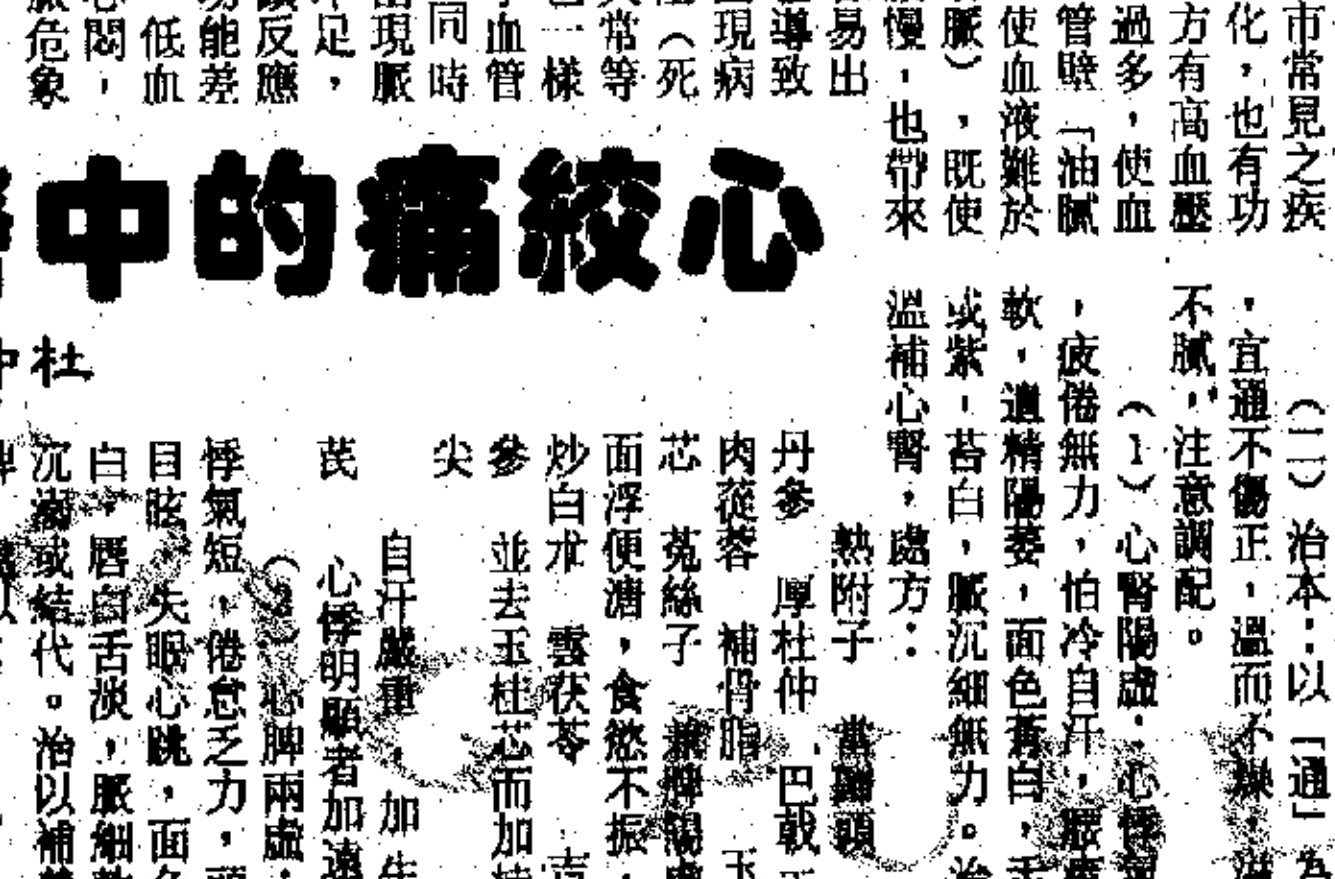 市常見之疾
化，也有功
方有高血壓
過多，使血
管壁「油膩
使血液難於
脈），既使
慢，也帶來
易出
導致
現病
（死
常等
一樣
血管
同時
現脈
足，
反應
能差
低血
悶，
危象
心絞痛的中
杜
（二）治本：以「通」為
，宜通不傷正，溫而不燥，滋
不膩，注意調配。
（1）心腎陽虛：心悸氣
，疲倦無力，怕冷自汗，腰痠
軟，遺精陽萎，面色蒼白，舌
或紫，苔白，脈沉細無力。治
溫補心腎，處方：
熟附子　當歸頭
丹參　厚杜仲　巴戟
肉蓯蓉　補骨脂　玉
芯　菟絲子　兼脾陽虛
面浮便溏，食慾不振，
炒白朮　雲茯苓
參　並去玉桂芯而加桂
尖
自汗嚴重，加
芪
心悸明顯者加遠
（2）心脾兩虛：
悸氣短，倦怠乏力，頭
目眩　失眠心跳，面
白，唇白舌淡，脈細
沉弱或結代。治以補